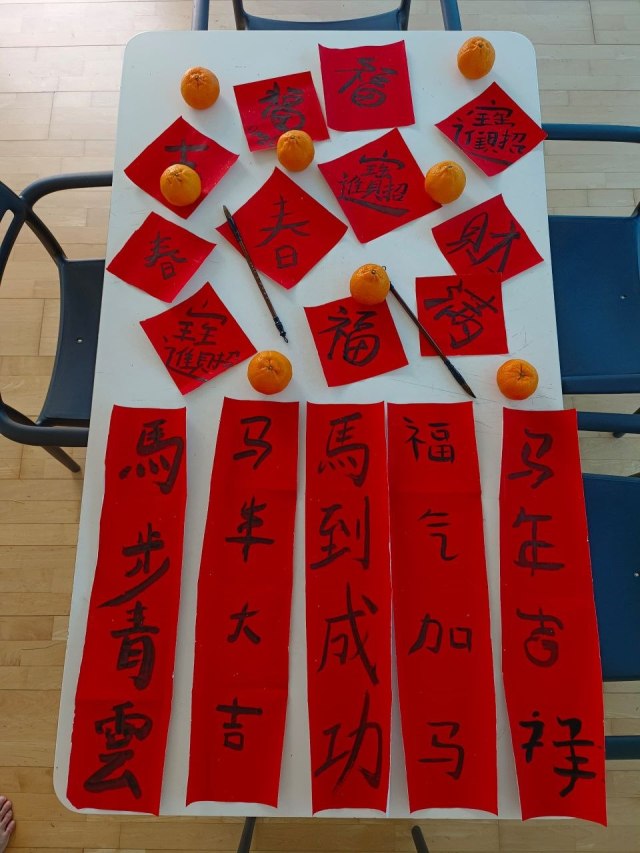 招財進寶
招財進寶
春
財
春
招財進寶
福
馬步青雲
马年大吉
馬到成功
福气加马
马年吉祥